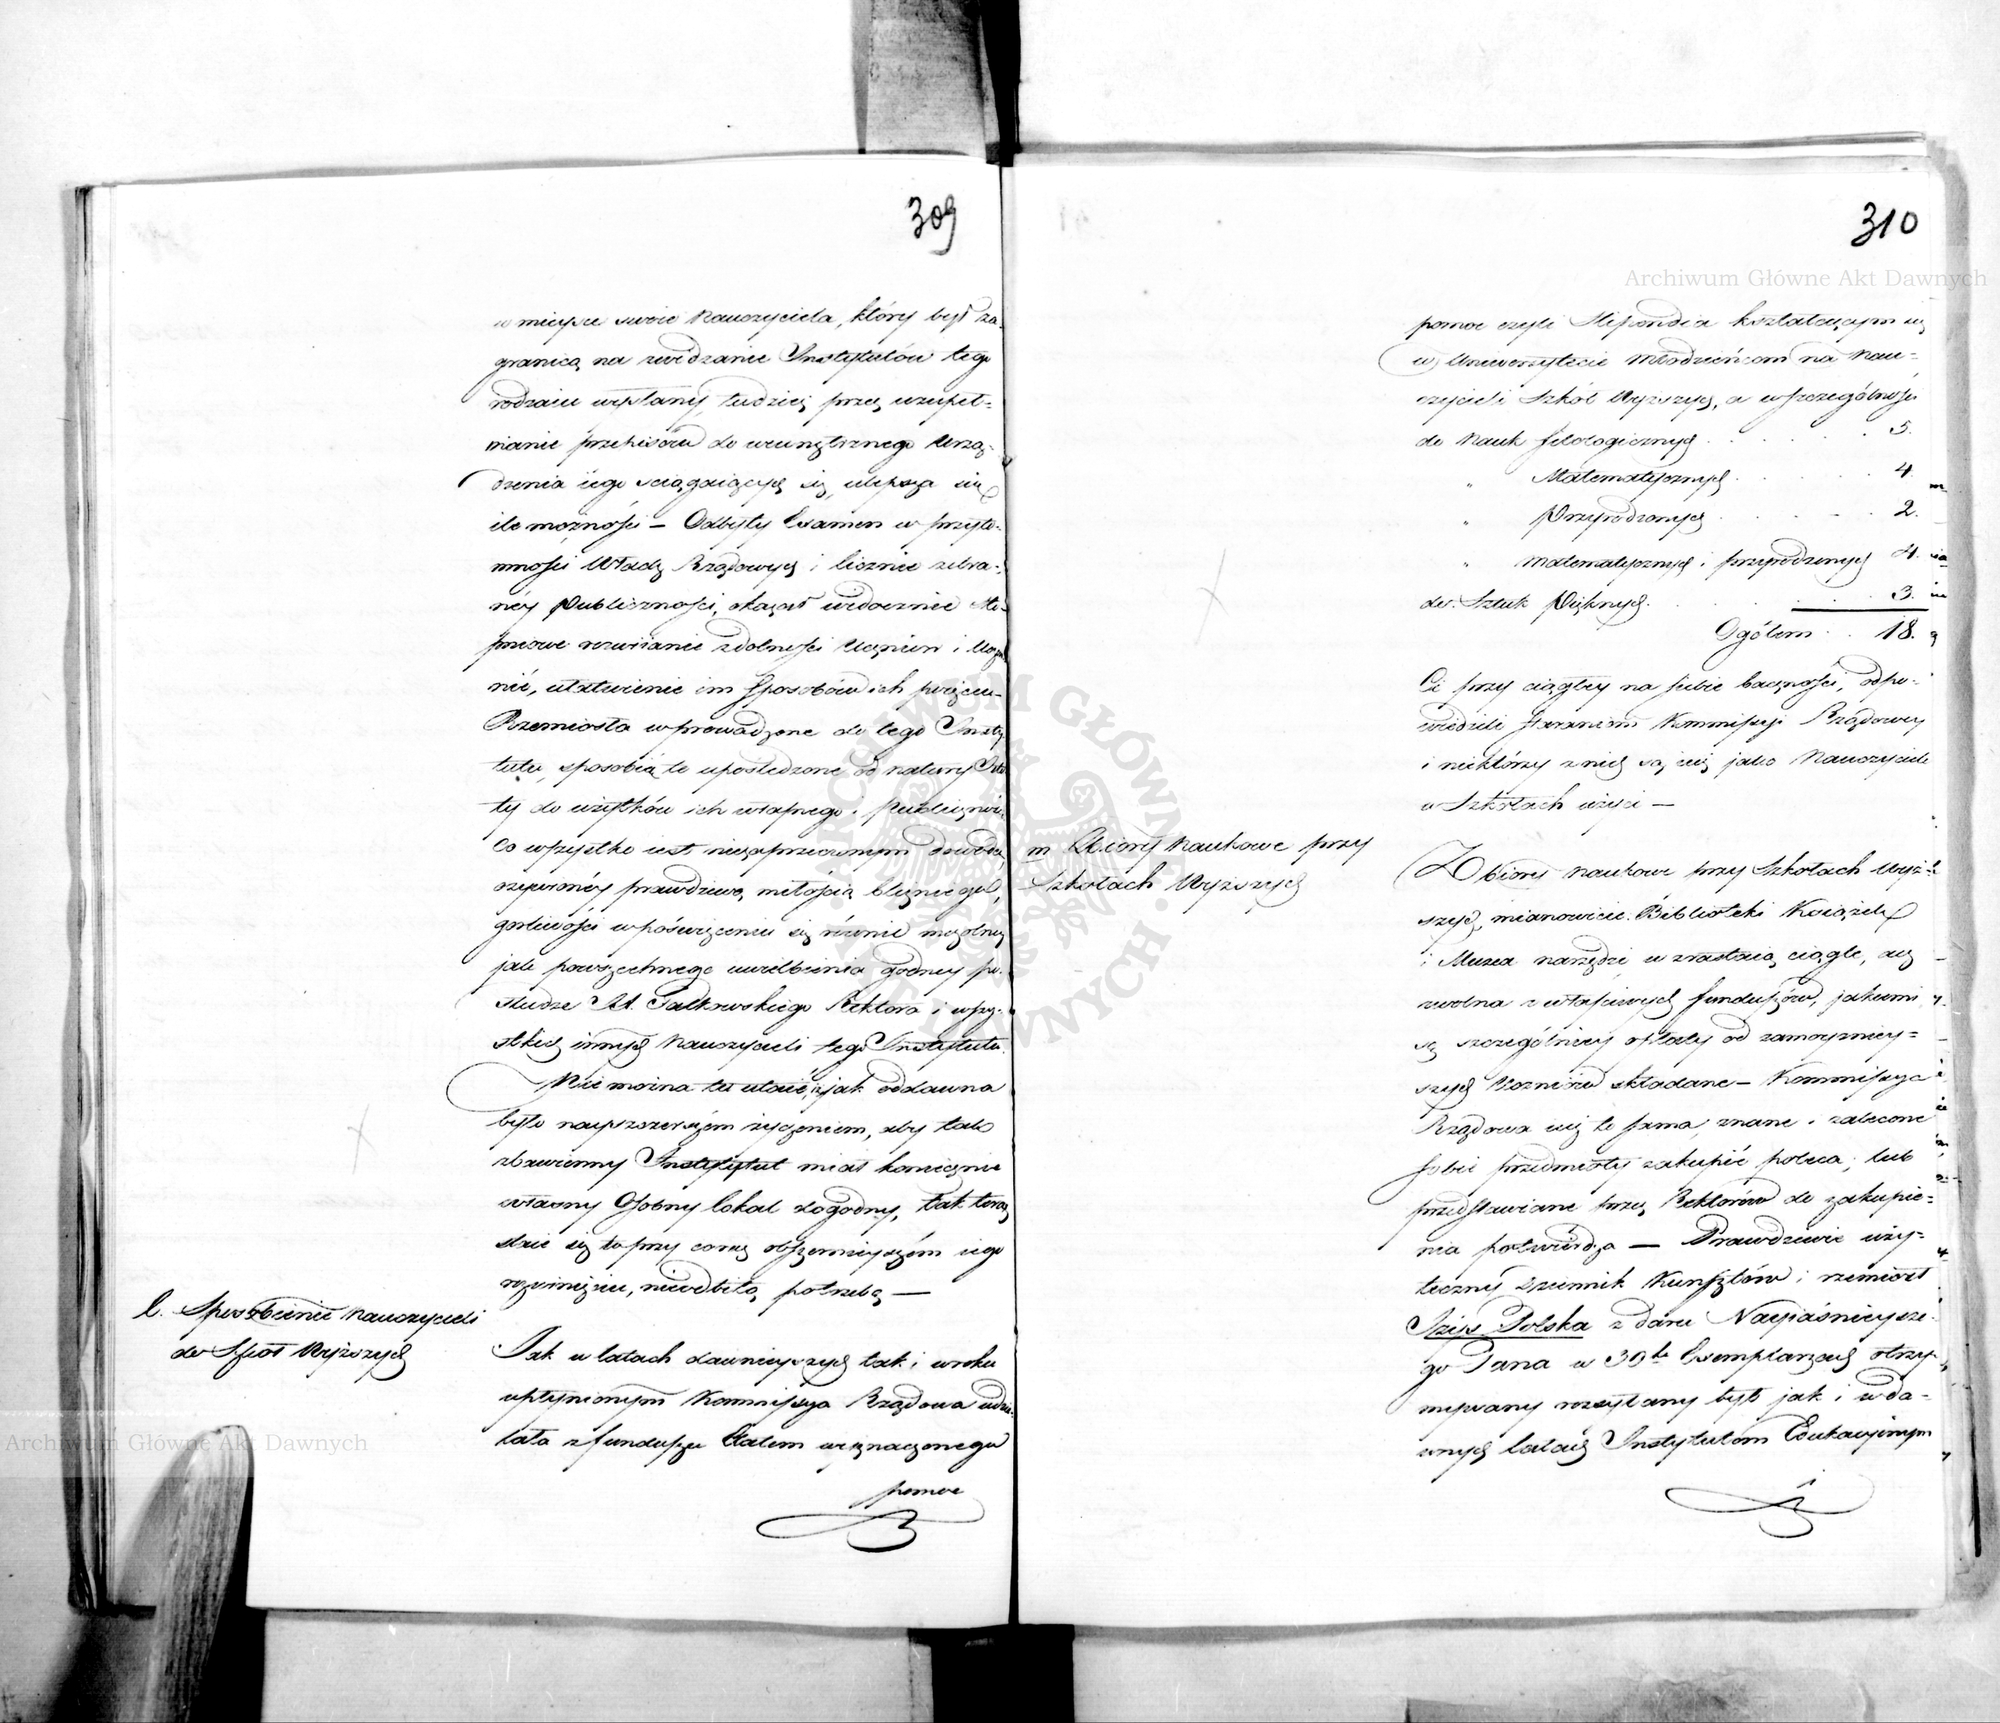 309
w mieysce swoie Nauczyciela, który był za-
granicą na zwidzanie Instytutów tego
rodzaiu wysłany, tudzież przez uzupeł-
nianie przepisów do wewnętrznego Urzą-
dzenia iego sciągaiących się, ulepsza się
ile możności — Odbyty Examen w przyto-
mności Władz Rządowych i licznie zebra-
néy Publiczności, okazał widocznie sto-
pniowe rozwiianie zdolności Uczniów i Ucze
nic, ułatwienie im sposobów ich poięciu
Rzemiosła wprowadzone do tego Insty
tutu, sposobią te upośledzone od natury Isto
ty do użytków ich własnego i publicznéy
Co wszystko iest niezaprzeczonym dowodem
ożywionéy prawdziwą miłością bliźniego,
gorliwości w poświęceniu się równie mozolney
jak powszechnego uwielbienia godney po-
słudze JX. Falkowskiego Rektora i wszy-
stkich innych Nauczycieli tego Instytutu.
Nie można tu utaić, iż jak oddawna
było nayszczerszém życzeniem, aby tak
zbawienny Instytut miał koniecznie
własny osobny lokal dogodny, tak teraz
staie się to przy coraz obszernieyszém iego
rozwinięciu, nieodbitą potrzebą —
l. Sposobienie Nauczycieli
do Szkół Wyższych
Jak w latach dawnieyszych tak i w roku
upłynionym Kommissya Rządowa udzie-
lała z funduszu Etatem wyznaczonego
pomoc
310
Archiwum Główne Akt Dawnych
pomoc czyli Stipendia kształcącym się
w Uniwersytecie Młodzieńcom na Nau-
czycieli Szkół Wyższych, a w szczególności
do Nauk filologicznych . . . . . 5.
" Matematycznych . . . . . 4.
" Przyrodzonych . . . . . 2.
" matematycznych i przyrodzonych 4.
do Sztuk Pięknych . . . . . 3.
Ogółem . . 18.
Ci przy ciągłey na siebie baczności, odpo-
wiedzieli staraniom Kommissyi Rządowey
i niektórzy z nich są iuż jako Nauczyciele
w Szkołach użyci —
m Zbiory Naukowe przy
Szkołach Wyższych
Zbiory naukowe przy Szkołach Wyż-
szych, mianowicie Biblioteki Książek
i Muzea narzędzi, wzrastaią ciągle, acz
zwolna z właściwych funduszów, jakiemi
są szczególniey opłaty od zamożniey-
szych Uczniów składane — Kommissya
Rządowa iuż to sama, znane i zalecone
sobie przedmioty zakupić poleca, lub
przedstawiane przez Rektorów do zakupie-
nia potwierdza — Prawdziwie uży-
teczny dziennik Kunsztów i rzemiosł
Izis Polska z daru Nayiaśnieysze-
go Pana w 30tu Exemplarzach otrzy-
mywany rozsyłany był jak i w da-
wnych latach Instytutom Edukacyinym
Archiwum Główne Akt Dawnych